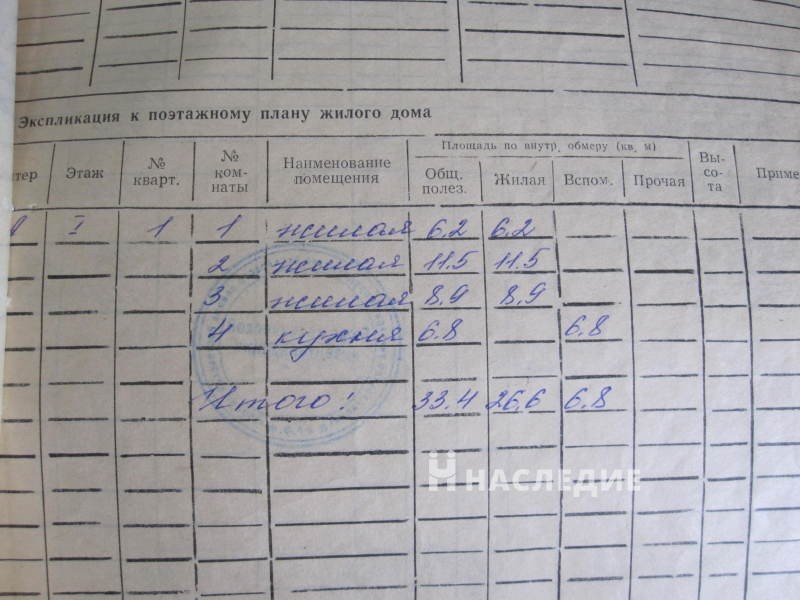 Экспликация к поэтажному плану жилого дома
тер Этаж № кварт. № ком-наты Наименование помещения Площадь по внутр. обмеру (кв. м) Вы-со-та Приме
Общ. полез. Жилая Вспом. Прочая
I 1 1 жилая 6.2 6.2
2 жилая 11.5 11.5
3 жилая 8,9 8,9
4 кухня 6.8 6.8
Итого: 33.4 26,6 6.8
НАСЛЕДИЕ